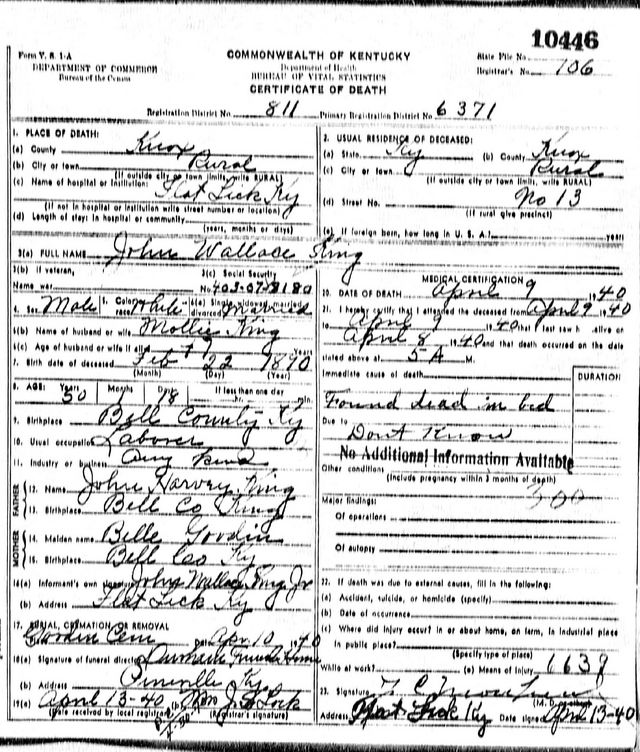 10446
Form V. S. 1-A
DEPARTMENT OF COMMERCE
Bureau of the Census
COMMONWEALTH OF KENTUCKY
Department of Health
BUREAU OF VITAL STATISTICS
CERTIFICATE OF DEATH
State File No.
Registrar's No. 106
Registration District No. 811 Primary Registration District No. 6371
1. PLACE OF DEATH:
(a) County Knox
(b) City or town Rural
(If outside city or town limits, write RURAL)
(c) Name of hospital or institution: Flat Lick Ky
(If not in hospital or institution write street number or location)
(d) Length of stay: in hospital or community
(years, months or days)
2. USUAL RESIDENCE OF DECEASED:
(a) State Ky (b) County Knox
(c) City or town Rural
(If outside city or town limits, write RURAL)
(d) Street No. No 13
(If rural give precinct)
(e) If foreign born, how long in U. S. A.? years
3(a) FULL NAME John Wallace King
3(b) If veteran,
Name war
3(c) Social Security
No. 403-07-8180
4. Sex Male 5. Color or race White 6(a) Single, widowed, married, divorced Married
6(b) Name of husband or wife Mollie King
6(c) Age of husband or wife if alive Years
7. Birth date of deceased Feb 22 1890
(Month) (Day) (Year)
8. AGE: Years 50 Months 1 Days 18 If less than one day
hr. min.
9. Birthplace Bell County Ky
10. Usual occupation Laborer
11. Industry or business Any kind
FATHER
12. Name John Harvey King
13. Birthplace Bell Co
MOTHER
14. Maiden name Belle Goodin
15. Birthplace Bell Co Ky
16(a) Informant's own signature John Wallace King Jr
(b) Address Flat Lick Ky
17. BURIAL, CREMATION OR REMOVAL
Goodin Cem Date Apr 10 1940
18(a) Signature of funeral director Funeral Home
(b) Address Pineville Ky
19(a) April 13-40 (b)
(Date received by local registrar) (Registrar's signature)
MEDICAL CERTIFICATION
20. DATE OF DEATH April 9 1940
21. I hereby certify that I attended the deceased from April 9 1940
to April 9 1940 that I last saw h alive on
April 8 1940 and that death occurred on the date
stated above at 5-A M.
Immediate cause of death
DURATION
Found dead in bed
Due to
Don't Know
No Additional Information Available
Other conditions
(Include pregnancy within 3 months of death)
Major findings:
Of operations
Of autopsy
22. If death was due to external causes, fill in the following:
(a) Accident, suicide, or homicide (specify)
(b) Date of occurrence
(c) Where did injury occur? in or about home, on farm, in industrial place
in public place?
(Specify type of place)
While at work? (e) Means of Injury 1638
23. Signature
Address Flat Lick Ky Date signed Apr 13-40